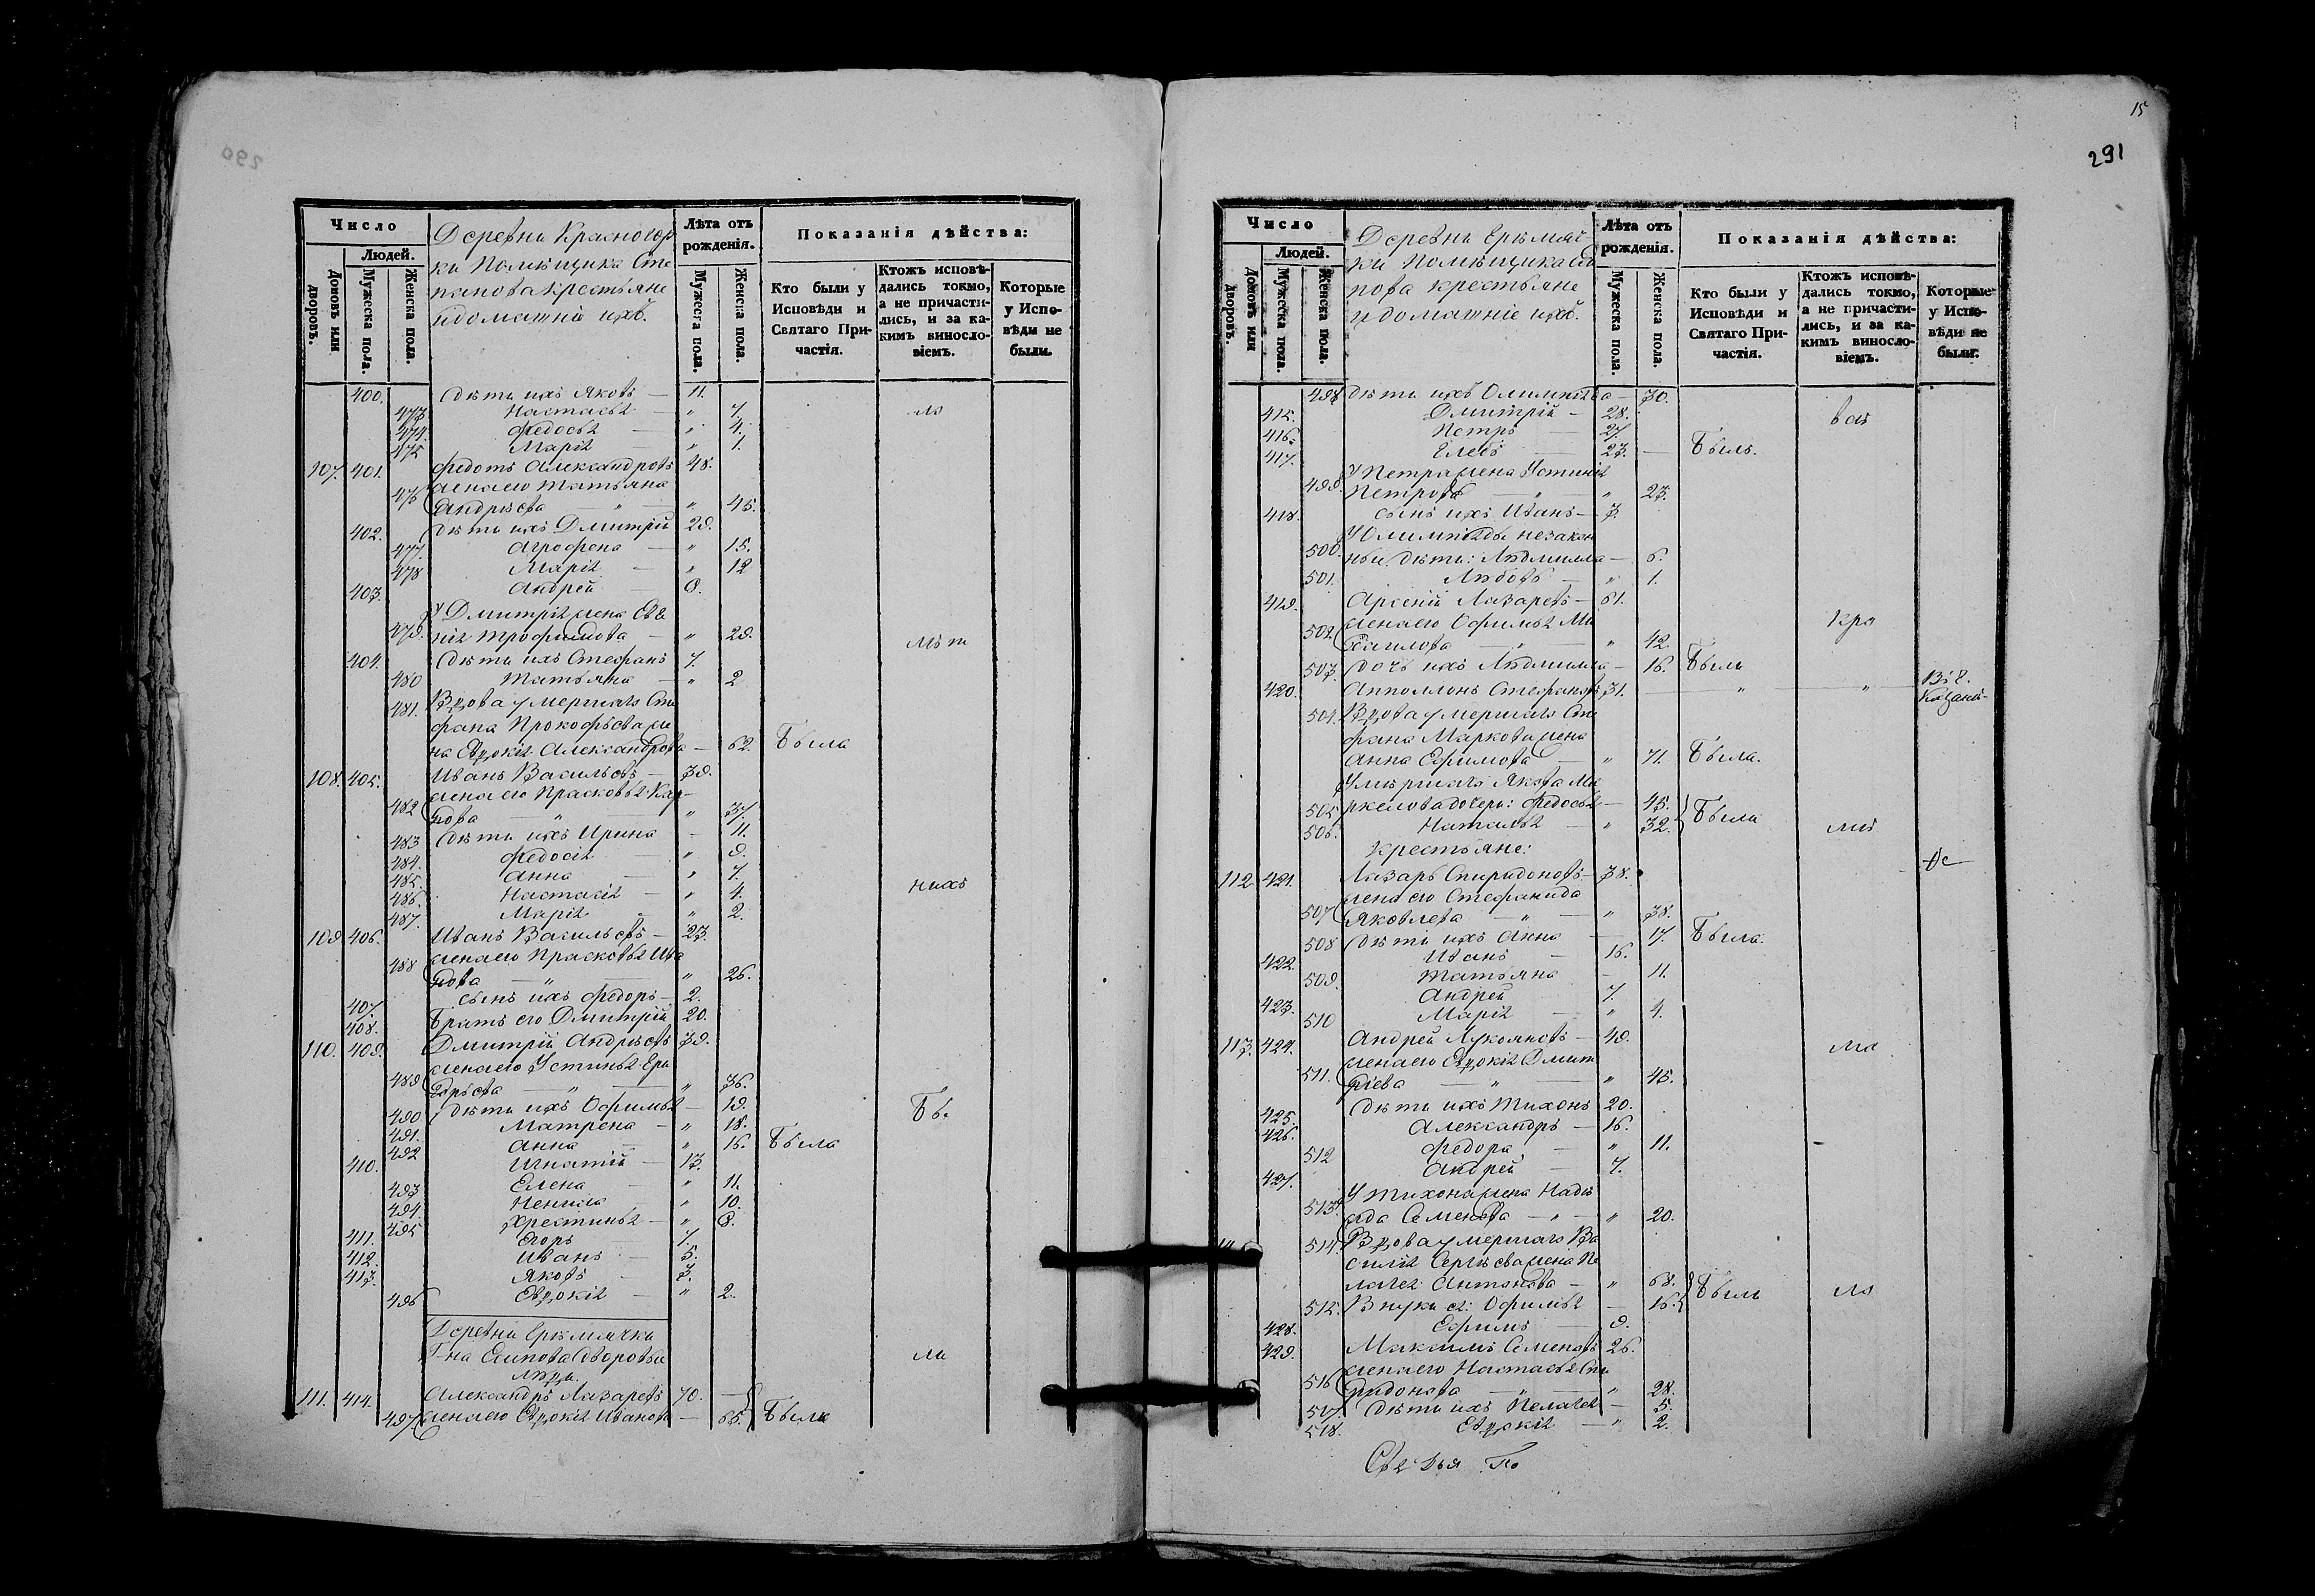 290
Число
Людей.
Домовъ или дворовъ.
Мужеска пола.
Женска пола.
Деревни Красногор
ки Помѣщика Сте
панова Крестьяне
и домашніи ихъ.
Лѣта отъ рожденія.
Мужеска пола.
Женска пола.
Показанія дѣйства:
Кто были у Исповѣди и Святаго Причастія.
Ктожъ исповѣдались токмо, а не причастились, и за какимъ винословіемъ.
Которые у Исповѣди не были.
400. Дѣти ихъ Яковъ — 11.
473 Настасья — " 7.
474. Федосья — " 4.
475 Марія — " 1.
107. 401. Федотъ Александровъ 48.
476 жена его Татьяна
Андрѣева — " — " 45.
402. Дѣти ихъ Дмитрій 29.
477. Агрофена — " 15.
478 Марія — " 12
403. Андрей — 8.
У Дмитрія жена Евге
479. нія Трофимова — " 29.
404. Дѣти ихъ Стефанъ 7.
480 Татьяна — " 2
481. Вдова умершаго Сте
фана Прокофьева же
на Евдокія Александрова — 62. Была
108. 405. Иванъ Васильевъ — 39.
482 жена его Прасковья Кар
пова — " — " 37.
483 Дѣти ихъ Ирина — 11.
484. Федосія — " 9.
485. Анна — " 7.
486. Настасія — " 4.
487. Марія — " 2.
109 406. Иванъ Васильевъ — 23.
488 жена его Прасковья Ива
нова — " — " 26.
407. сынъ ихъ Федоръ — 2.
408. Братъ его Дмитрій 20.
110. 409. Дмитрій Андрѣевъ 39.
489 жена его Устинья
" 36.
490 Дѣти ихъ Офимья — 19.
491. Матрена — " 18.
492 Анна — " 16. Была
410. Игнатій — 13.
493 Елена — " 11.
494. " 10.
495 Хрестинья — " 8.
411. Егоръ — 7.
412. Иванъ — 5.
413. Яковъ — 3.
496 Евдокія — " 2.
Деревни Ерѣмячки
Г-на Осипова Дворовые
люди.
111. 414. Александръ Лазаревъ 70.
497 жена его Евдокія Иванова — 65. Были
15
291
Число
Людей.
Домовъ или дворовъ.
Мужеска пола.
Женска пола.
Деревни Ерѣмяч-
ки Помѣщика
пова крестьяне
и домашніе ихъ.
Лѣта отъ рожденія.
Мужеска пола.
Женска пола.
Показанія дѣйства:
Кто были у Исповѣди и Святаго Причастія.
Ктожъ исповѣдались токмо, а не причастились, и за какимъ винословіемъ.
Которые у Исповѣди не были.
498 Дѣти ихъ Олимпіада — 30.
415. Дмитрій — 28.
416. Петръ — 27.
417. Глебъ — 23. — Былъ.
У Петра жена Устинія
499. Петрова — " — " 23.
418. сынъ ихъ Иванъ — 3.
У Олимпіады незакон
500. ныи дѣти: Людмилла — 6.
501. Любовь — " 1.
419. Арсеній Лазаревъ — 61.
502. жена его Офимья Ми
хаилова — " 42
503. Дочь ихъ Людмилла — 16. Были
420. Апполлонъ Стефановъ 31. — " — "
504. Вдова умершаго Сте
фана Маркова жена
Анна Ефимова — " 71. Была.
Умершаго Якова Ма
505 ркелова дочери: Федосья — 45.
506. Наталья — " 32. Были
Крестьяне:
112 421. Лазарь Спиридоновъ — 38.
507 жена его Стефанида
Яковлева — " — " 38.
508 Дѣти ихъ Анна — 17. Была.
422. Иванъ — 16.
509. Татьяна — 11.
423. Андрей 7.
510 Марія — " 4.
113. 424. Андрей Лукояновъ — 49.
511. жена его Евдокія Дмит
ріева — " — " 45.
425. Дѣти ихъ Тихонъ 20.
426. Александръ — 16.
512 Федора — " 11.
427. Андрей — 7.
У Тихона жена Наде
513. жда Семенова — " — " 20.
514. Вдова умершаго Ва
силія Сергѣева жена Пе
лагея Антонова — " 68.
515. Внуки ея: Офимья — 16. Были
428. Ефимъ — 9.
429. Максимъ Семеновъ 26.
516 жена его Настасья Спи
ридонова — " — " 28.
517. Дѣти ихъ Пелагея — 5.
518. Евдокія — " 2.